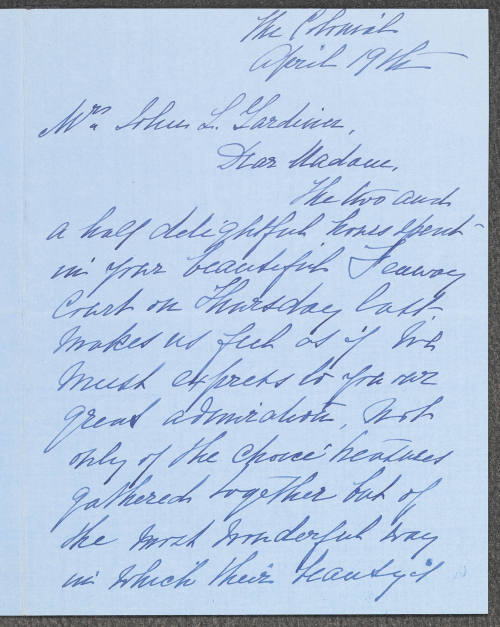 The Colonial
April 19th
Mrs. John L. Gardiner,
Dear Madam,
The two and
a half delightful hours spent
in your beautiful Fenway
Court on Thursday last
makes us feel as if we
must express to you our
great admiration, not
only of the choice treasures
gathered together but of
the most wonderful way
in which their beauty is